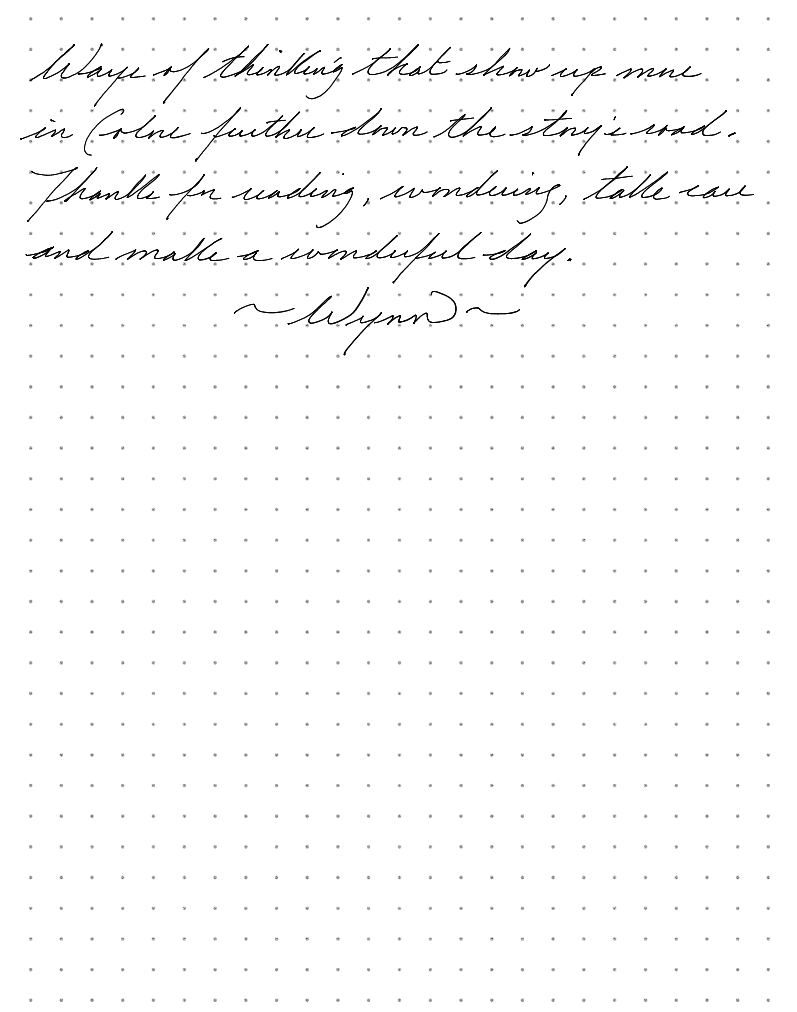 Ways of thinking that show up more
in Colore further down the story's road.
Thanks for reading, wondering, take care
and make a wonderful day.
~ Wynn ~